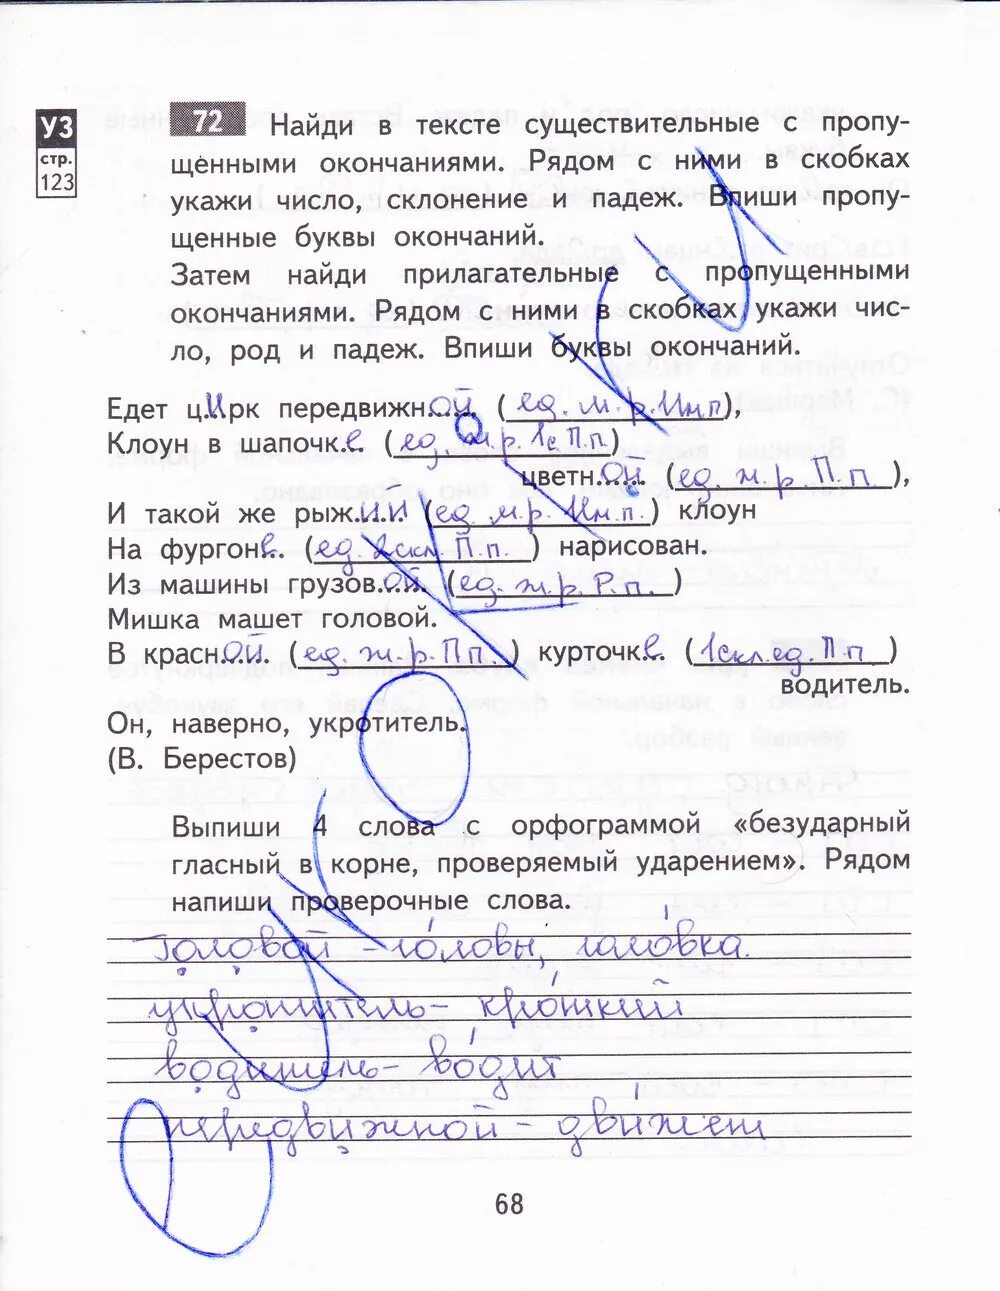 УЗ
стр.
123
72 Найди в тексте существительные с пропу-
щенными окончаниями. Рядом с ними в скобках
укажи число, склонение и падеж. Впиши пропу-
щенные буквы окончаний.
Затем найди прилагательные с пропущенными
окончаниями. Рядом с ними в скобках укажи чис-
ло, род и падеж. Впиши буквы окончаний.
Едет цирк передвижной (ед. м. р. Им.п),
Клоун в шапочке (ед. ж.р. 1с П.п)
цветной (ед. ж. р. П.п),
И такой же рыжий (ед. м.р. Им.п.) клоун
На фургоне (ед. 2скл. П.п.) нарисован.
Из машины грузовой (ед. ж.р. Р.п.)
Мишка машет головой.
В красной (ед. ж.р. П.п) курточке (1скл.ед. П.п)
водитель.
Он, наверно, укротитель.
(В. Берестов)
Выпиши 4 слова с орфограммой «безударный
гласный в корне, проверяемый ударением». Рядом
напиши проверочные слова.
головой – головы, головка.
укротитель – кроткий
водитель – водит
передвижной – движет
68